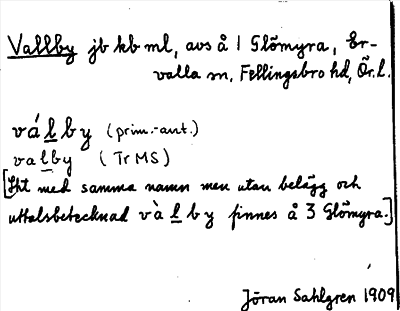 Vallby jb kb ml, avs å 1 Glömyra, Er-
valla sn, Fellingsbro hd, Ör. l.
vá l b y (prim.-ant.)
valby (Tr MS)
[Iht med samma namn men utan belägg och
uttalsbetecknad và l b y finnes å 3 Glömyra.]
Jöran Sahlgren 1909